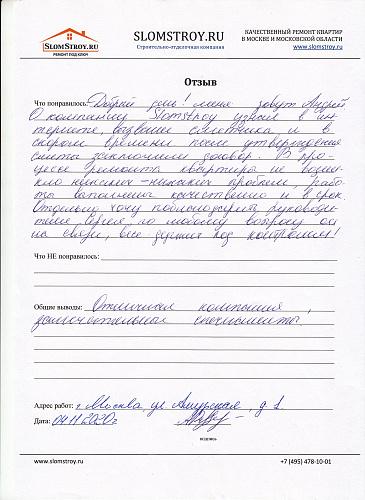 SLOMSTROY.RU
РЕМОНТ ПОД КЛЮЧ
SLOMSTROY.RU
Строительно-отделочная компания
КАЧЕСТВЕННЫЙ РЕМОНТ КВАРТИР
В МОСКВЕ И МОСКОВСКОЙ ОБЛАСТИ
www.slomstroy.ru
Отзыв
Что понравилось: Добрый день! меня зовут Андрей
О компании Slomstroy узнал в ин-
тернете, вызвали сметчика, и в
скором времени после утверждения
сметы заключили договор. В про-
цессе ремонта квартиры не возни-
кло никаких проблем, рабо-
ты выполнены качественно и в срок.
Отдельно хочу поблагодарить руководи-
теля по любому вопросу он
на связи, все держит под контролем!
Что НЕ понравилось:
Общие выводы: Отличная компания,
замечательные специалисты.
Адрес работ: г. Москва, ул. Амурская, д 1.
Дата: 04.11.2020г
подпись
www.slomstroy.ru
+7 (495) 478-10-01